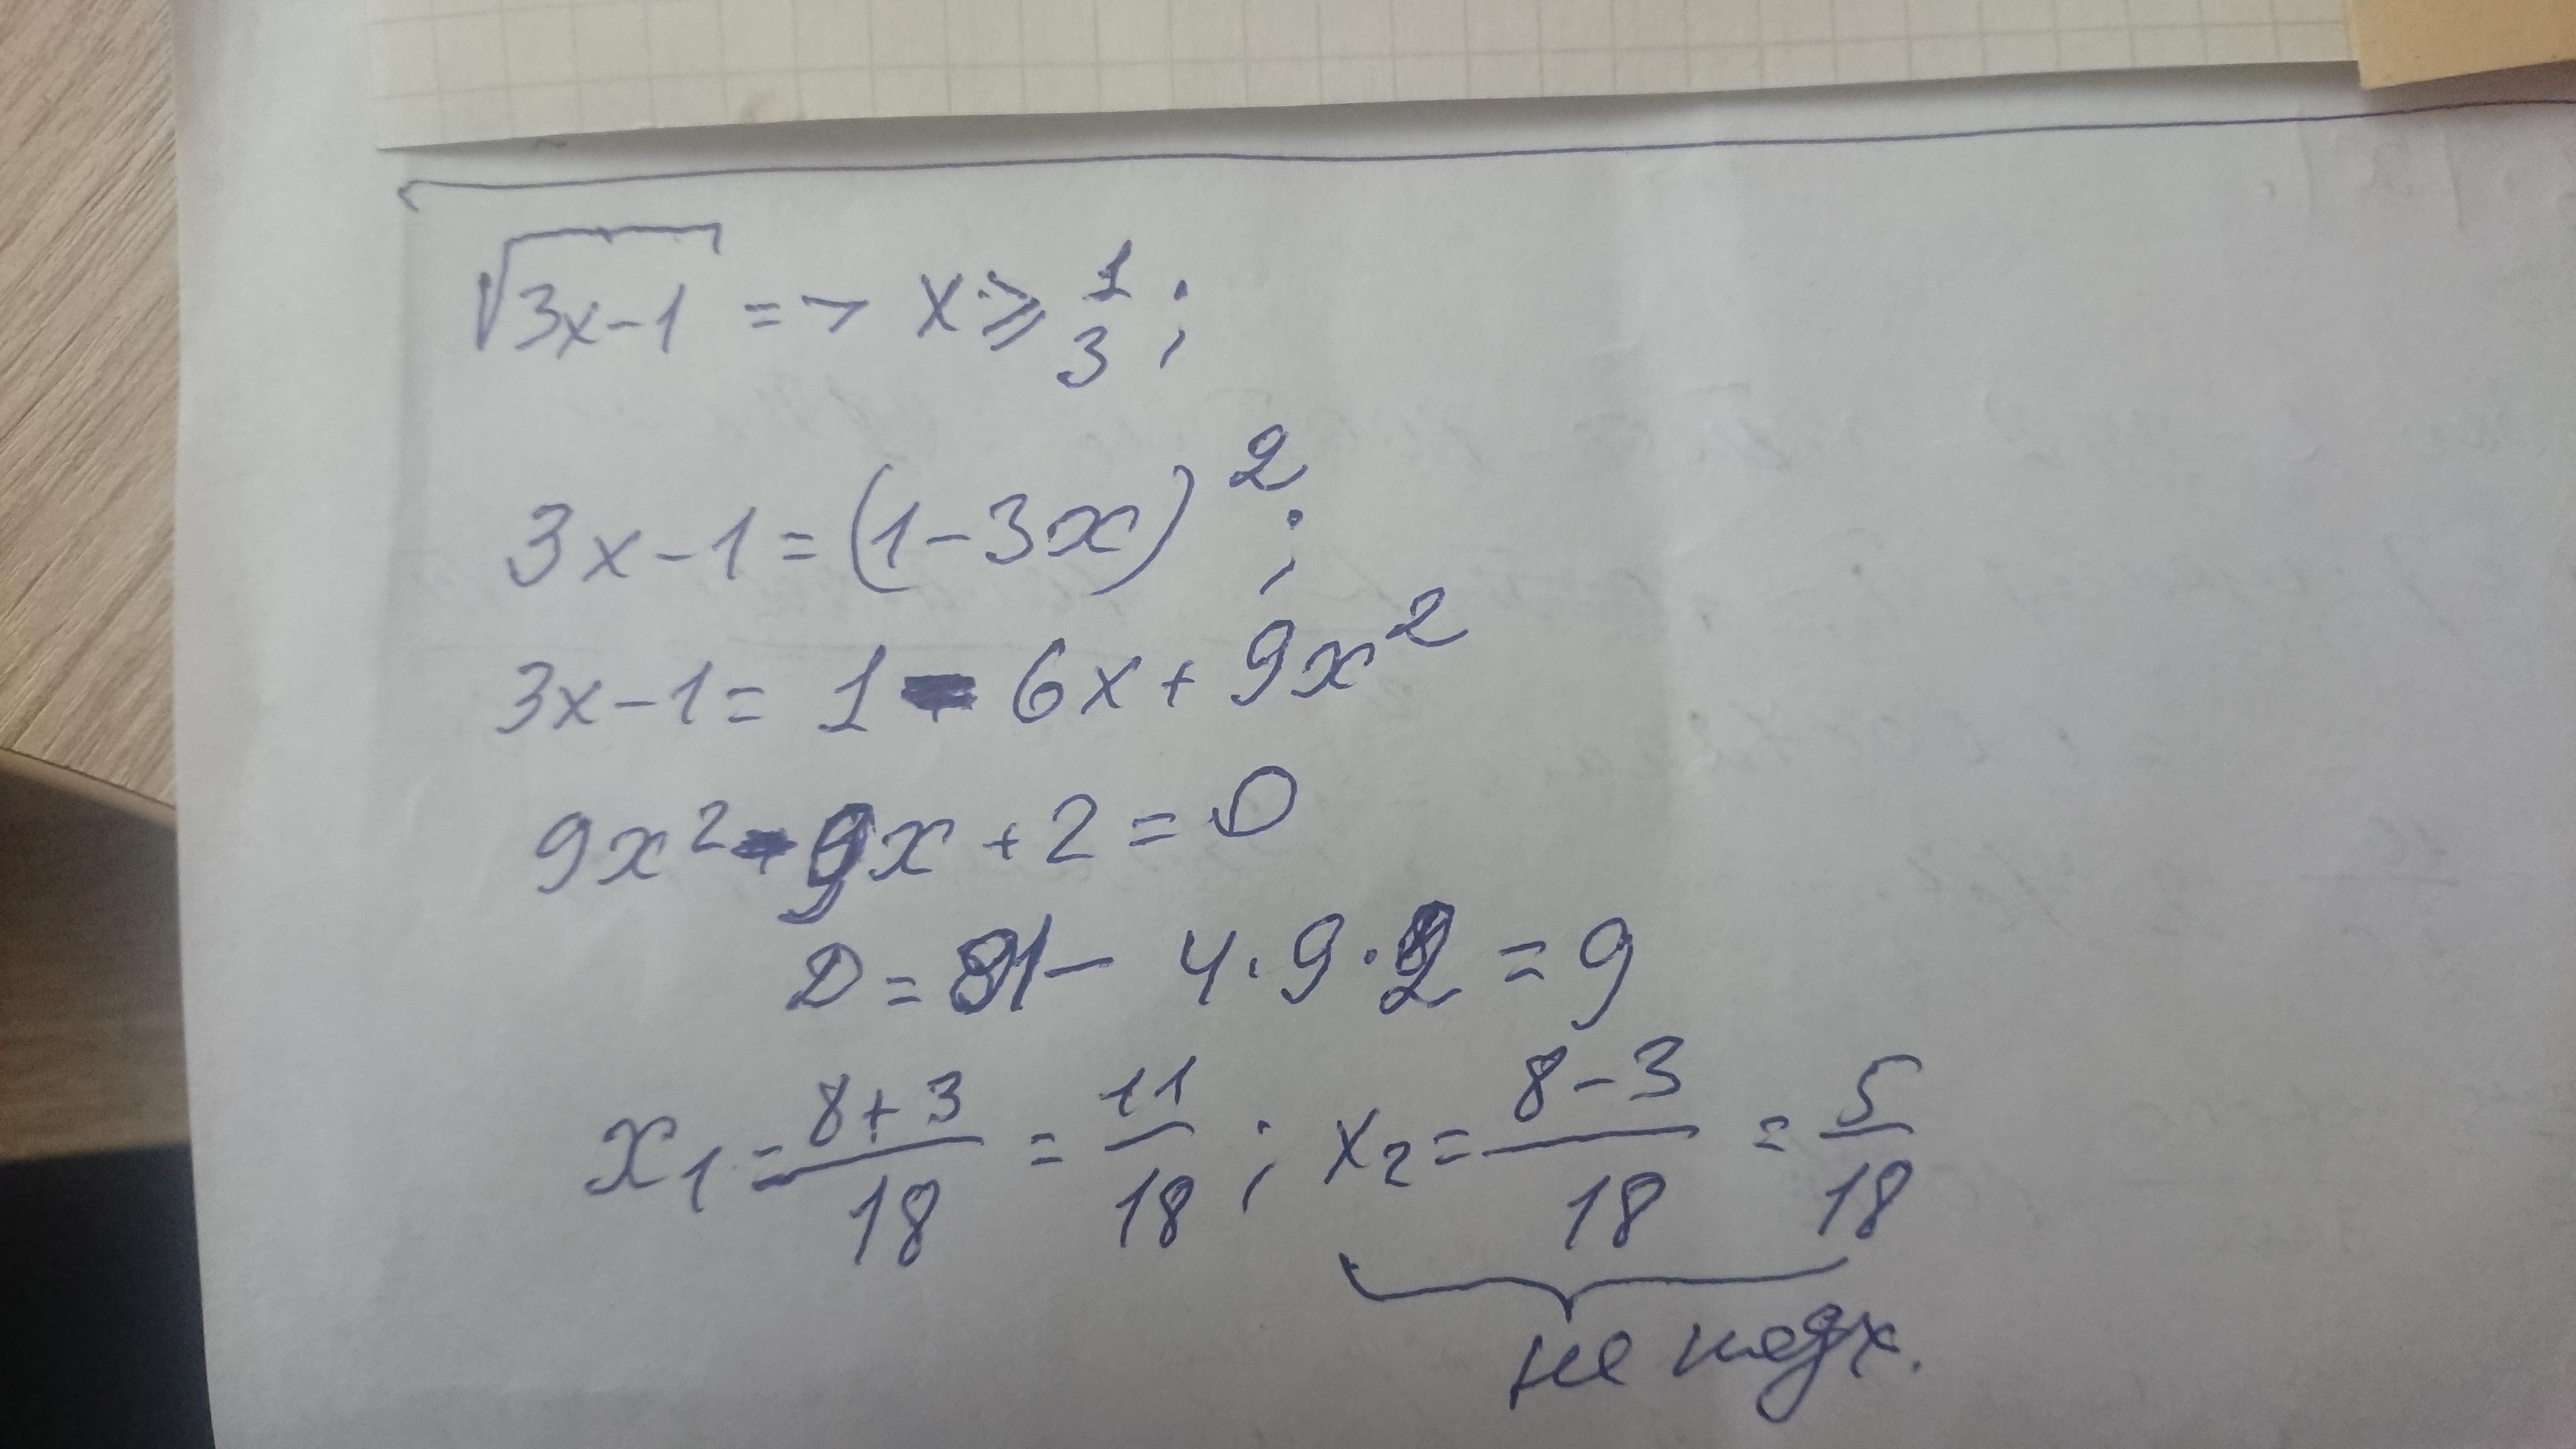 √3x-1 => x ⩾ 1/3 ;
3x-1=(1-3x)² ;
3x-1= 1 - 6x + 9x²
9x² - 9x + 2 = 0
D = 81 - 4·9·2 = 9
x₁ = 8+3/18 = 11/18 ; x₂ = 8-3/18 = 5/18
не подх.